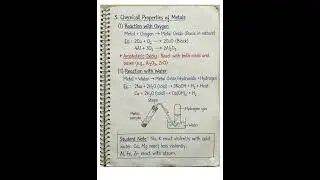 3. Chemical Properties of Metals
(1) Reaction with Oxygen
Metal + Oxygen → Metal Oxide (Basic in nature)
Eg.: 2Cu + O₂ → 2CuO (Black)
4Al + 3O₂ → 2Al₂O₃
Amphoteric Oxides: React with both acids and
bases (e.g., Al₂O₃, ZnO)
(1) Reaction with Water:
Metal + Water → Metal Oxide/Hydroxide + Hydrogen
Eg.: 2Na + 2H₂O (cold) → 2NaOH + H₂ + Heat
Ca + 2H₂O (cold) → Ca(OH)₂ + H₂
Steam
Hydrogen gas
Metal
sample
Water
Student Note: Na, K react violently with cold
water. Ca, Mg react less violently.
Al, Fe, Zn react with steam.